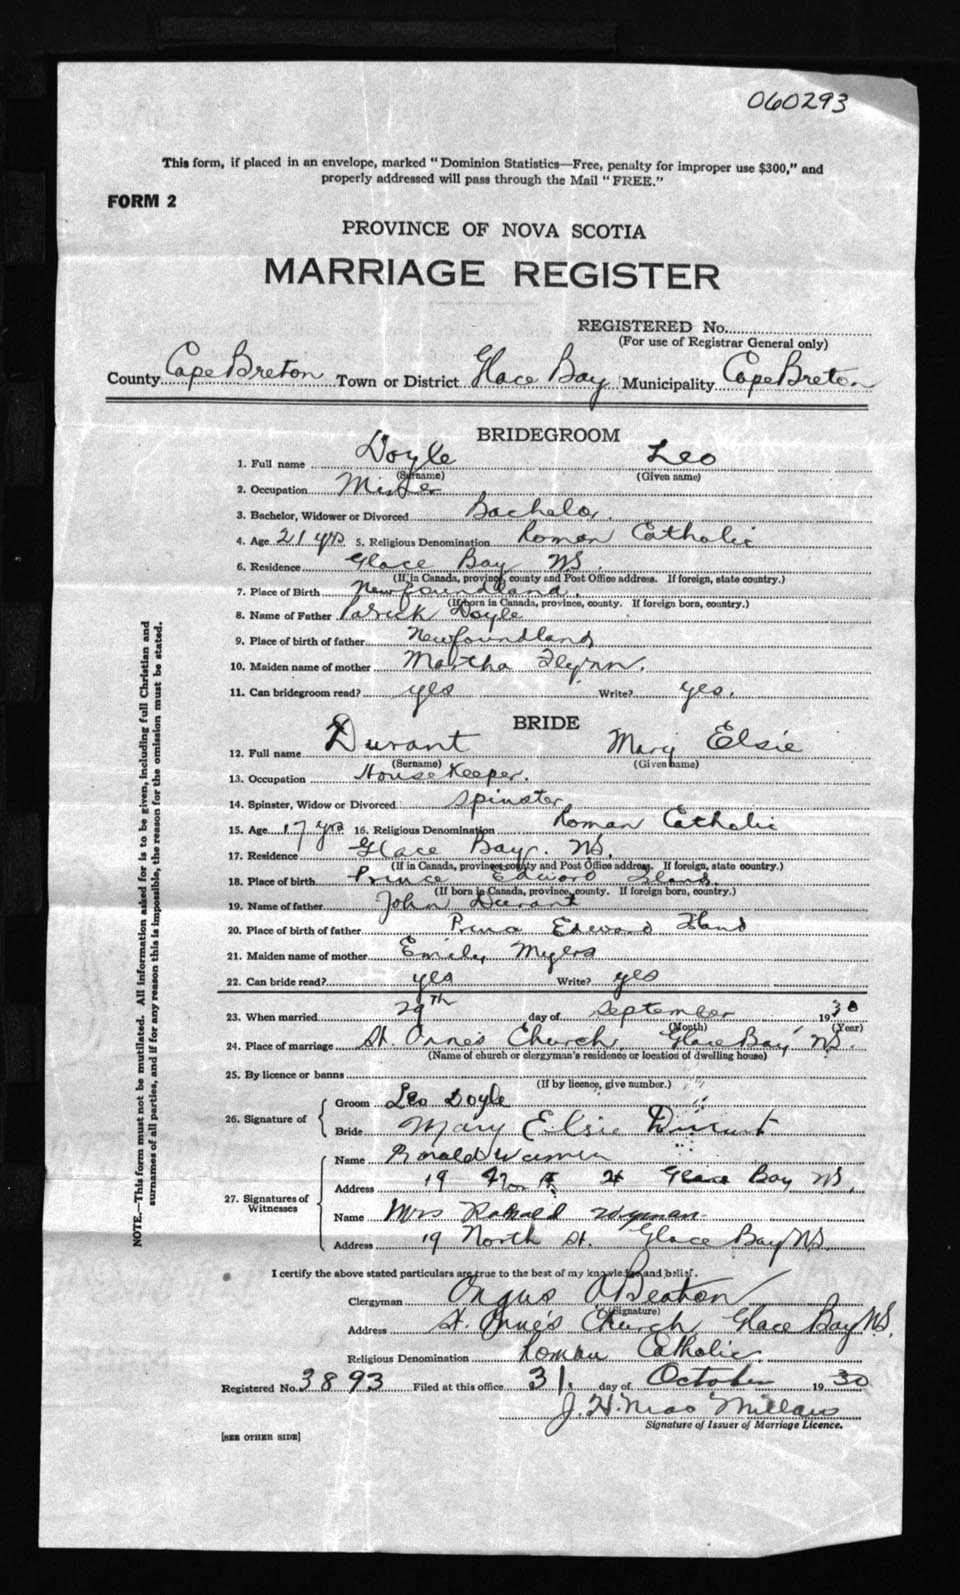 060293
This form, if placed in an envelope, marked "Dominion Statistics—Free, penalty for improper use $300," and
properly addressed will pass through the Mail "FREE."
FORM 2
PROVINCE OF NOVA SCOTIA
MARRIAGE REGISTER
REGISTERED No.
(For use of Registrar General only)
County Cape Breton Town or District Glace Bay Municipality Cape Breton
BRIDEGROOM
1. Full name Doyle Leo
(Surname) (Given name)
2. Occupation
3. Bachelor, Widower or Divorced Bachelor.
4. Age 21 yrs 5. Religious Denomination Roman Catholic
6. Residence Glace Bay NS.
(If in Canada, province, county and Post Office address. If foreign, state country.)
7. Place of Birth Newfoundland.
(If born in Canada, province, county. If foreign born, country.)
8. Name of Father Patrick Doyle
9. Place of birth of father Newfoundland
10. Maiden name of mother Martha Flynn.
11. Can bridegroom read? yes Write? yes.
BRIDE
12. Full name Durant Mary Elsie
(Surname) (Given name)
13. Occupation House Keeper.
14. Spinster, Widow or Divorced Spinster
15. Age 17 yrs 16. Religious Denomination Roman Catholic
17. Residence Glace Bay. NS.
(If in Canada, province, county and Post Office address. If foreign, state country.)
18. Place of birth Prince Edward Island.
(If born in Canada, province, county. If foreign born, country.)
19. Name of father John Durant
20. Place of birth of father Prince Edward Island
21. Maiden name of mother Emily Myers
22. Can bride read? yes Write? yes
23. When married 29th day of September 1930
(Month) (Year)
24. Place of marriage St. Anne's Church, Glace Bay NS.
(Name of church or clergyman's residence or location of dwelling house)
25. By licence or banns
(If by licence, give number.)
26. Signature of Groom Leo Doyle
Bride Mary Elsie Durant
27. Signatures of Witnesses
Name Ronald
Address 19 St Glace Bay NS.
Name Mrs Ronald Wyman
Address 19 North St. Glace Bay NS.
I certify the above stated particulars are true to the best of my knowledge and belief.
Clergyman Angus Beaton
(Signature)
Address St. Anne's Church, Glace Bay NS.
Religious Denomination Roman Catholic.
Registered No. 3893 Filed at this office 31. day of October 1930
J. H.
Signature of Issuer of Marriage Licence.
[SEE OTHER SIDE]
NOTE.—This form must not be mutilated. All information asked for is to be given, including full Christian and
surnames of all parties, and if for any reason this is impossible, the reason for the omission must be stated.